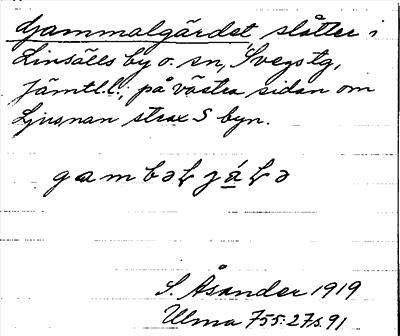 Gammalgärdet slåtter i
Linsälls by o. sn, Svegs tg,
Jämtl.l., på västra sidan om
Ljusnan strax S byn.
S. Åsander 1919
Ulma 755:27 s. 91